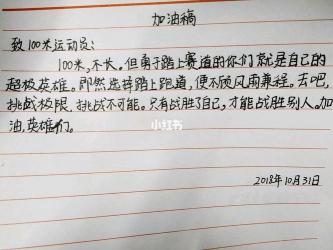 加油稿
致100米运动员：
100米，不长。但勇于踏上赛道的你们就是自己的
超极英雄。即然选择踏上跑道，便不顾风雨兼程。去吧，
挑战极限，挑战不可能。只有战胜了自己，才能战胜别人。加
油，英雄们。
小红书
2018年10月31日